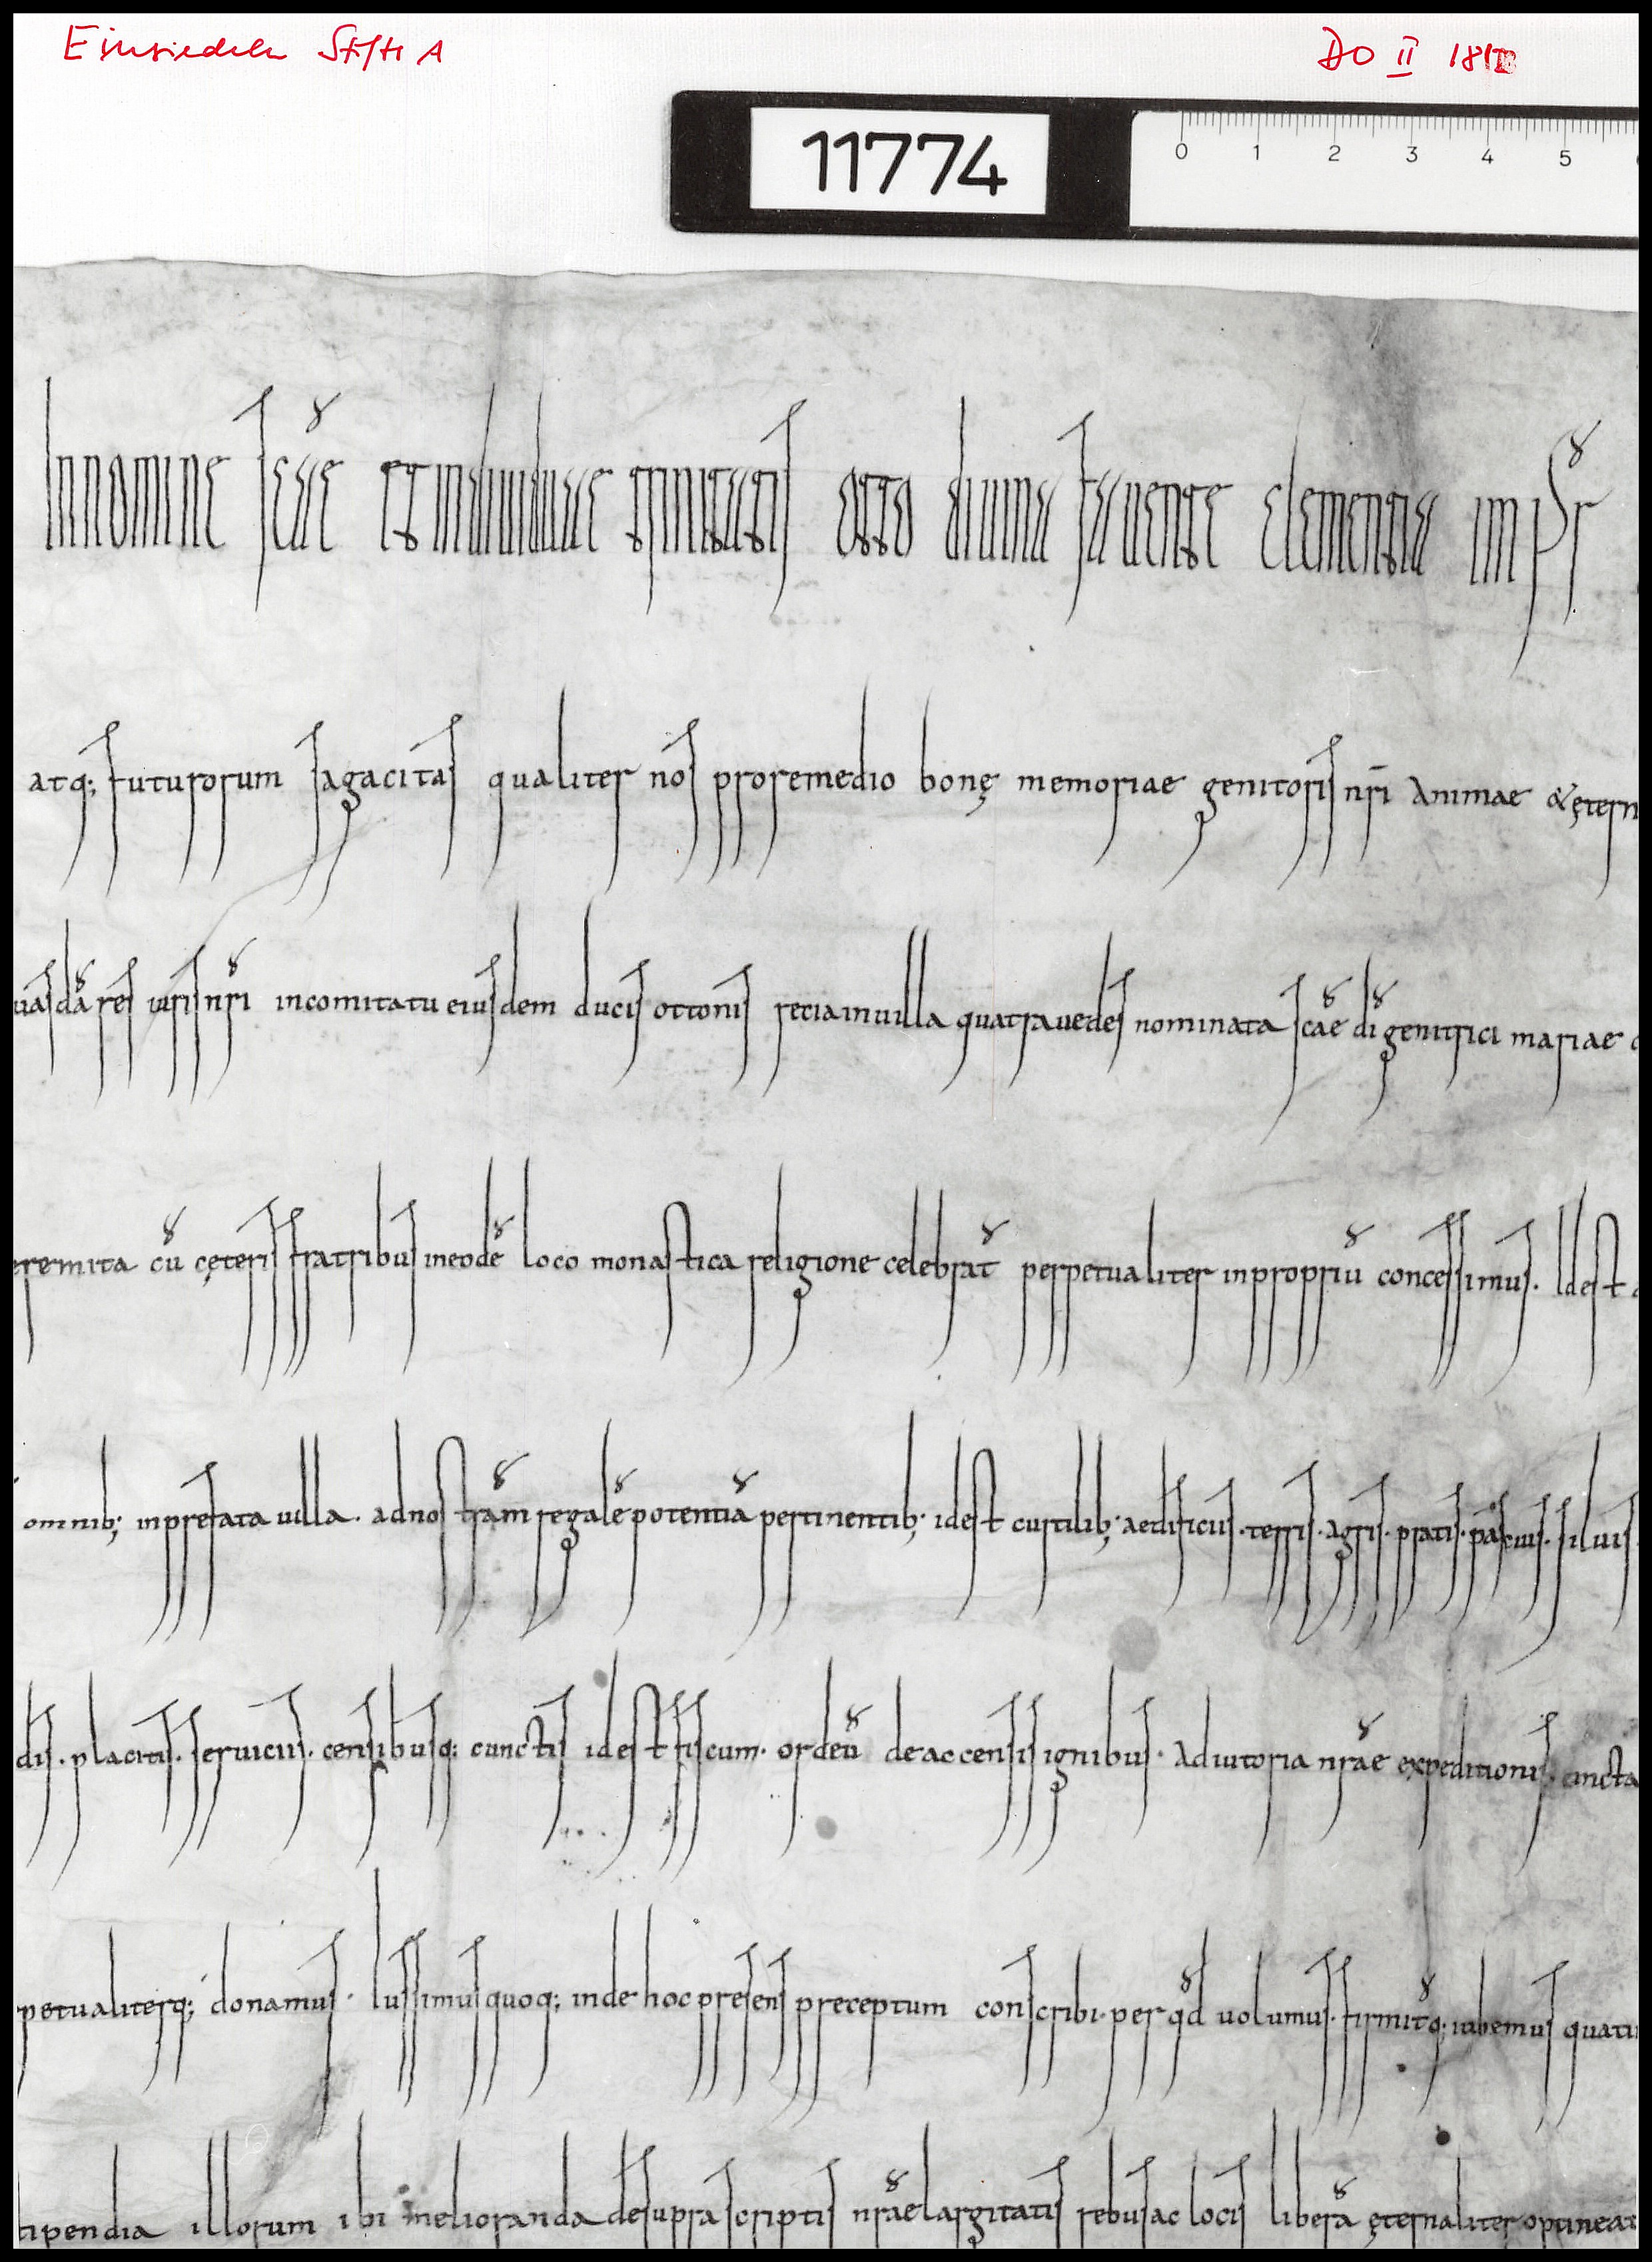 Einsiedeln Stift A
DO II 181
11774
0 1 2 3 4 5
In nomine scae et individuae trinitatis otto divina favente clementia impr
atq; futurorum sagacitas qualiter nos pro remedio bonę memoriae genitoris nri Animae & ętern
uasdā res iuris nri in comitatu eiusdem ducis ottonis retia in uilla quatrauedes nominata scae dī genitrici mariae
eremita cū cęteris fratribus in eodē loco monastica religione celebrat perpetualiter in propriū concessimus. Id est
omnib; in prefata uilla. ad nostrām regalē potentiā pertinentib; id est curtilib; aedificiis. terris. agris. pratis. pascuis. siluis.
dis. placitis. seruiciis. censibusq; cunctis id est fiscum. ordeū de accensis ignibus. Adiutoria nrae expeditionis. cuncta
petualiterq; donamus. Iussimus quoq; inde hoc presens preceptum conscribi. per qd uolumus. firmitq; iubemus quatin
tipendia illorum ibi melioranda de suprascriptis nrae largitatis rebus ac locis liberā ęternaliter optineat